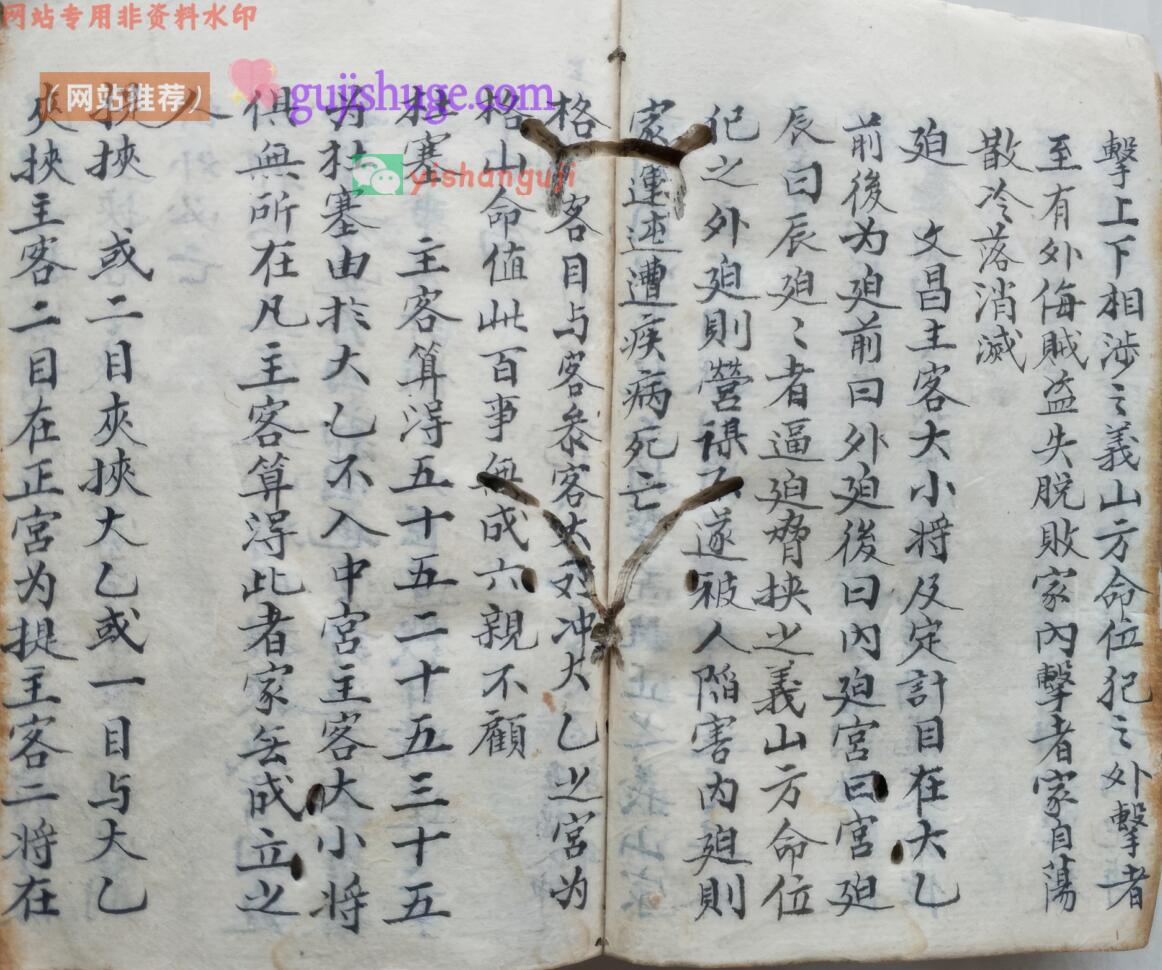 网站专用非资料水印
（网站推荐）
gujishuge.com
yishanguji
擊上下相涉之義山方命位犯之外擊者
至有外侮賊盗失脱敗家內擊者家自蕩
散冷落消滅
廹　文昌主客大小将及定計目在大乙
前後为廹前曰外廹後曰内廹宮曰宮廹
辰曰辰廹〻者逼廹脅挟之義山方命位
犯之外廹則營謀不遂被人陷害内廹則
家運迍遭疾病死亡
格　客目与客叅客大对冲大乙之宮为
格山命值此百事無成六親不顧
杜塞　主客算淂五十五二十五三十五
为杜塞由扵大乙不入中宮主客大小将
俱無所在凡主客算淂此者家無成立之
人
提挾　或二目夾挾大乙或一目与大乙
夾挾主客二目在正宮为提主客二将在